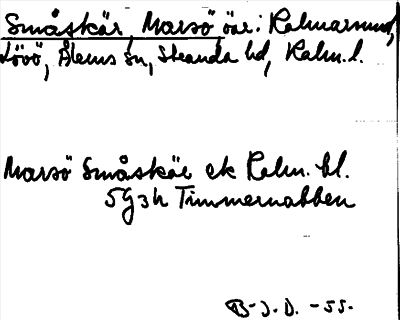 Småskär, Marsö öar i Kalmarsund,
Lövö, Ålems sn, Stranda hd, Kalm. l.
Marsö Småskär ek Kalm. bl.
5G3h Timmernabben
B-J.D. -55-